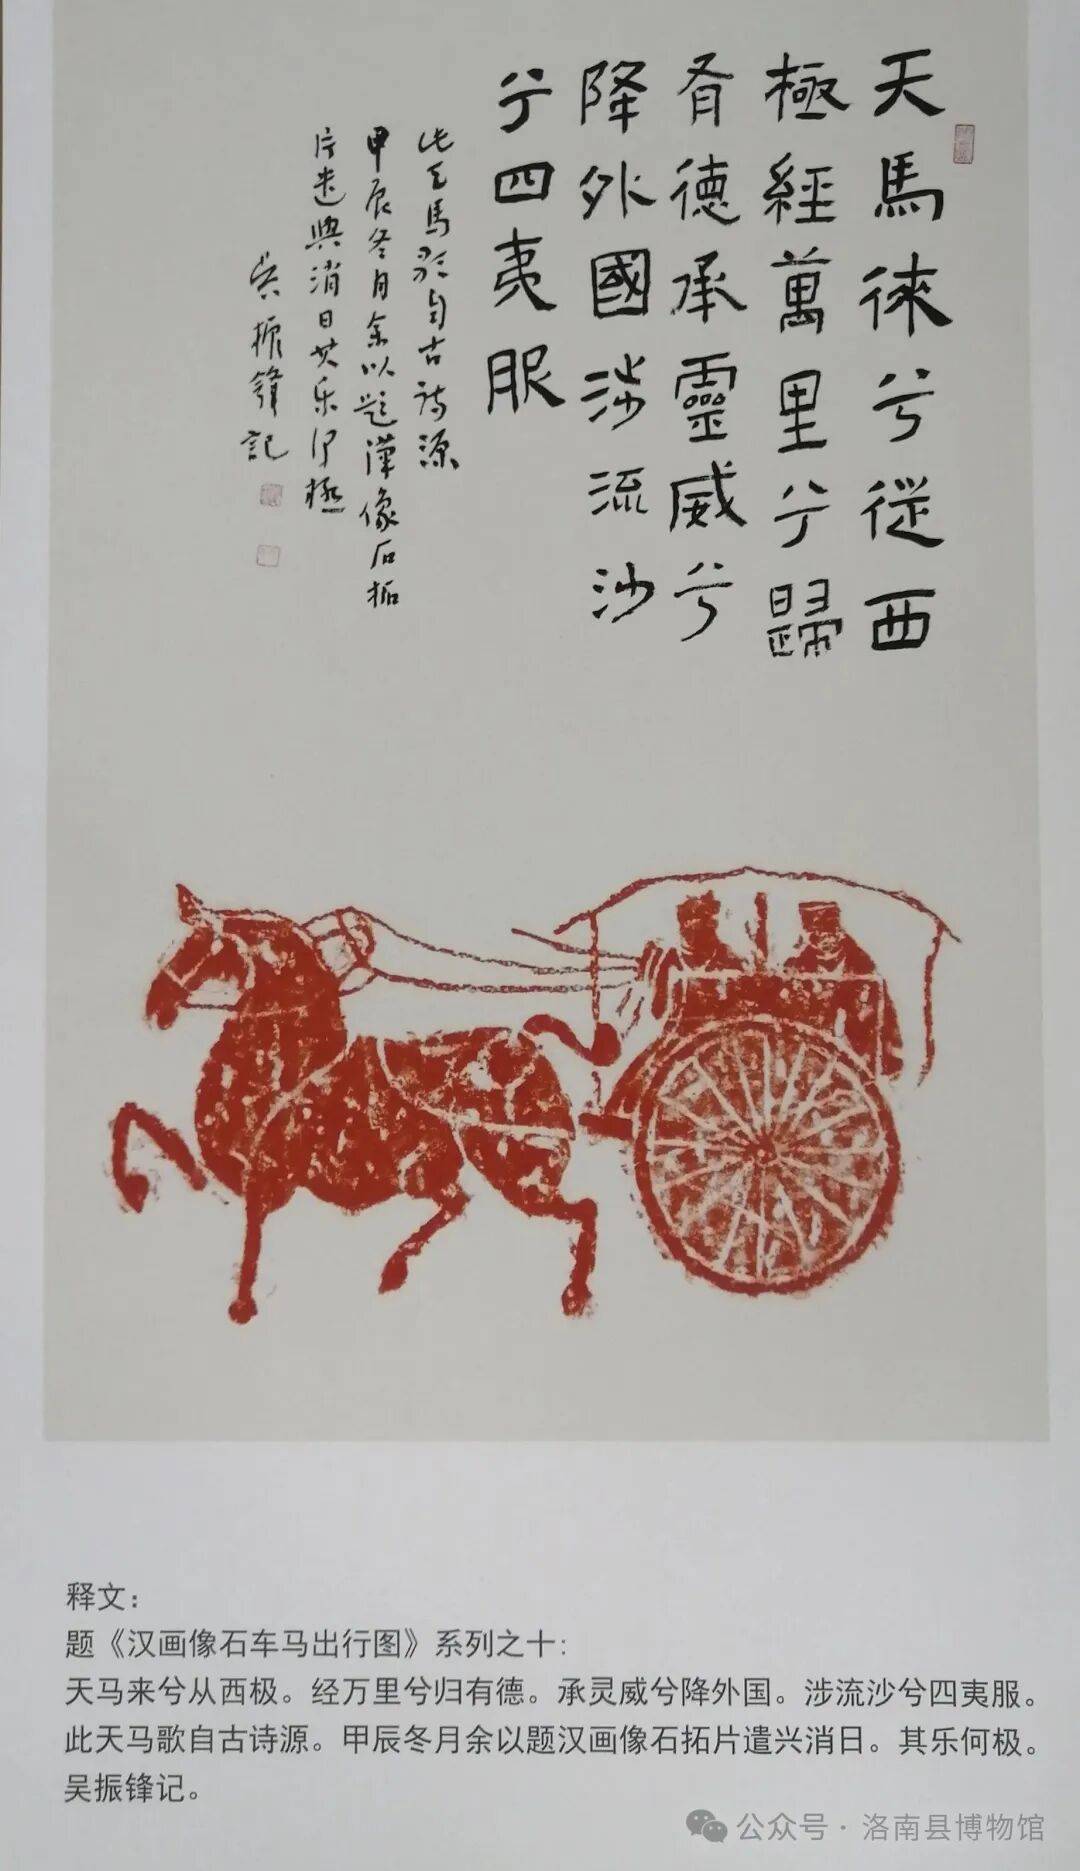 天馬徠兮從西
極經萬里兮歸
有德承靈威兮
降外國涉流沙
兮四夷服
此天馬歌自古诗源
甲辰冬月余以题漢像石拓
片遣興消日其乐何極
吴振鋒記
释文：
题《汉画像石车马出行图》系列之十：
天马来兮从西极。经万里兮归有德。承灵威兮降外国。涉流沙兮四夷服。
此天马歌自古诗源。甲辰冬月余以题汉画像石拓片遣兴消日。其乐何极。
吴振锋记。
公众号·洛南县博物馆